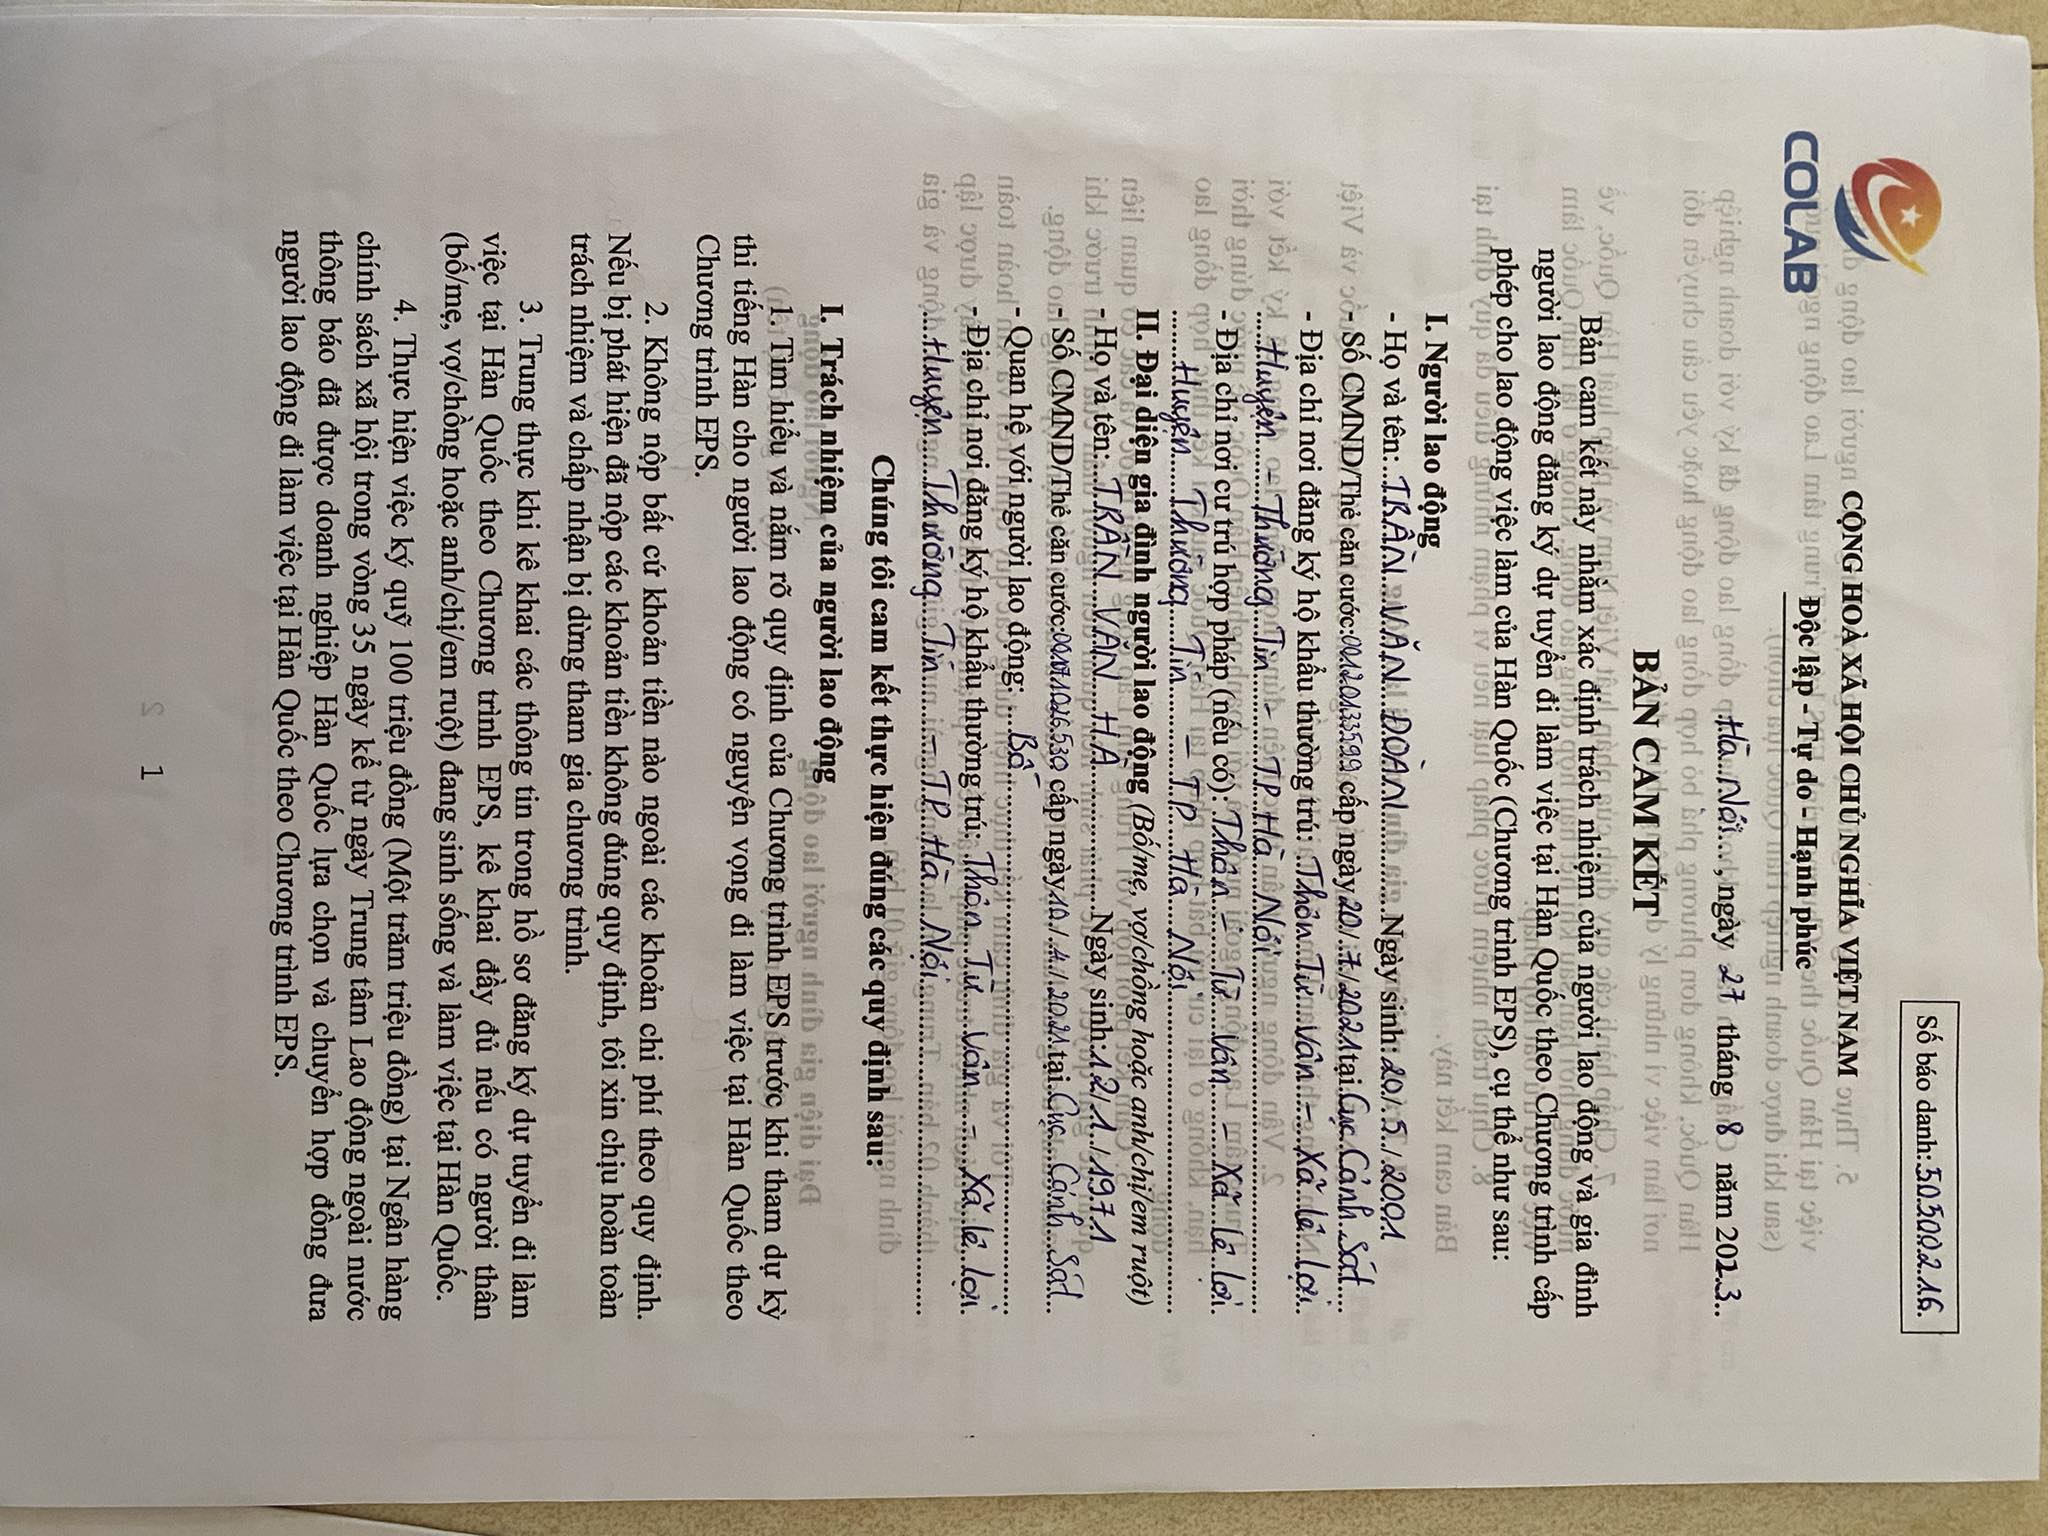 Số báo danh: 50500216
COLAB
CỘNG HOÀ XÃ HỘI CHỦ NGHĨA VIỆT NAM
Độc lập - Tự do - Hạnh phúc
Hà Nội, ngày 27 tháng 8 năm 2023
BẢN CAM KẾT
Bản cam kết này nhằm xác định trách nhiệm của người lao động và gia đình
người lao động đăng ký dự tuyển đi làm việc tại Hàn Quốc theo Chương trình cấp
phép cho lao động việc làm của Hàn Quốc (Chương trình EPS), cụ thể như sau:
I. Người lao động
- Họ và tên: TRẦN VĂN ĐOÀN Ngày sinh: 20/5/2001
- Số CMND/Thẻ căn cước: cấp ngày 20/7/2021 tại Cục Cảnh Sát
- Địa chỉ nơi đăng ký hộ khẩu thường trú: Thôn Từ Vân - Xã Lê Lợi
Huyện - Thường Tín - TP Hà Nội
- Địa chỉ nơi cư trú hợp pháp (nếu có): Thôn - Từ Vân - Xã Lê Lợi
Huyện Thường Tín - TP Hà Nội
II. Đại diện gia đình người lao động (Bố/mẹ, vợ/chồng hoặc anh/chị/em ruột)
- Họ và tên: TRẦN VĂN HÀ Ngày sinh: 12/1/1971
- Số CMND/Thẻ căn cước: cấp ngày 10/4/2021 tại Cục Cảnh Sát
- Quan hệ với người lao động: Bố
- Địa chỉ nơi đăng ký hộ khẩu thường trú: Thôn Từ Vân - Xã Lê Lợi
Huyện Thường Tín - TP Hà Nội
Chúng tôi cam kết thực hiện đúng các quy định sau:
I. Trách nhiệm của người lao động
1. Tìm hiểu và nắm rõ quy định của Chương trình EPS trước khi tham dự kỳ
thi tiếng Hàn cho người lao động có nguyện vọng đi làm việc tại Hàn Quốc theo
Chương trình EPS.
2. Không nộp bất cứ khoản tiền nào ngoài các khoản chi phí theo quy định.
Nếu bị phát hiện đã nộp các khoản tiền không đúng quy định, tôi xin chịu hoàn toàn
trách nhiệm và chấp nhận bị dừng tham gia chương trình.
3. Trung thực khi kê khai các thông tin trong hồ sơ đăng ký dự tuyển đi làm
việc tại Hàn Quốc theo Chương trình EPS, kê khai đầy đủ nếu có người thân
(bố/mẹ, vợ/chồng hoặc anh/chị/em ruột) đang sinh sống và làm việc tại Hàn Quốc.
4. Thực hiện việc ký quỹ 100 triệu đồng (Một trăm triệu đồng) tại Ngân hàng
chính sách xã hội trong vòng 35 ngày kể từ ngày Trung tâm Lao động ngoài nước
thông báo đã được doanh nghiệp Hàn Quốc lựa chọn và chuyển hợp đồng đưa
người lao động đi làm việc tại Hàn Quốc theo Chương trình EPS.
1